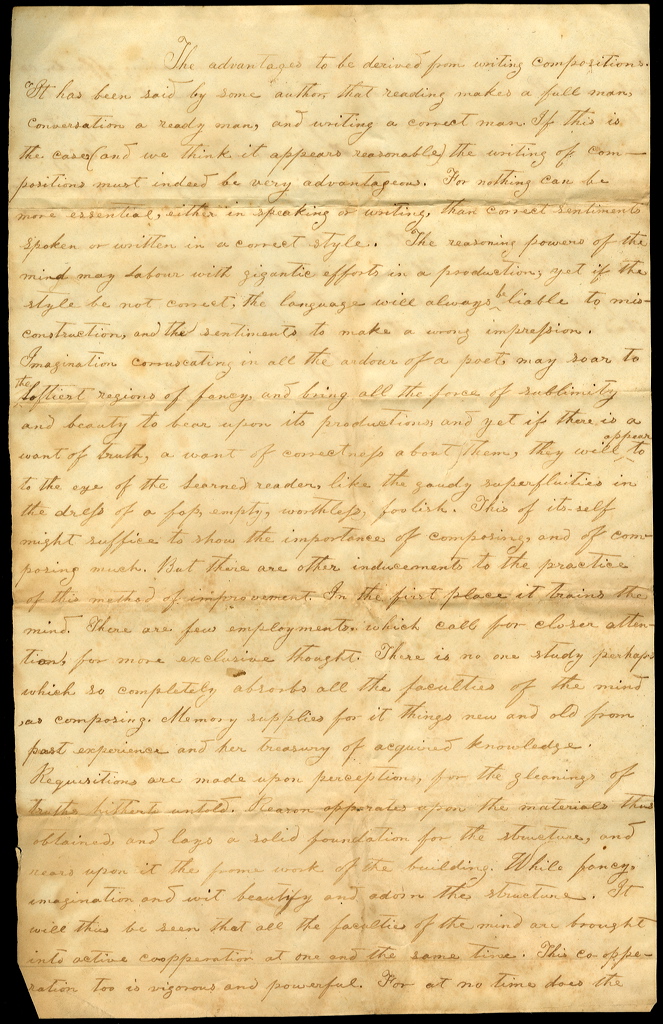 The advantages to be derived from writing compositions.
It has been said by some author, that reading makes a full man,
conversation a ready man, and writing a correct man. If this is
the case (and we think it appears reasonable) the writing of com-
positions must indeed be very advantageous. For nothing can be
more essential, either in speaking or writing, than correct sentiments
spoken or written in a correct style. The reasoning powers of the
mind may labour with gigantic efforts in a production, yet if the
style be not correct, the language will always be liable to mis-
construction, and the sentiments to make a wrong impression.
Imagination corruscating in all the ardour of a poet, may soar to
the loftiest regions of fancy, and bring all the force of sublimity
and beauty to bear upon its productions, and yet if there is a
want of truth, a want of correctness about them, they will appear to
to the eye of the learned reader, like the gaudy superfluities in
the dress of a fop, empty, worthless, foolish. This of its-self
might suffice to show the importance of composing, and of com-
posing much. But there are other inducements to the practice
of this method of improvement. In the first place it trains the
mind. There are few employments, which call for closer atten-
tion, for more exclusive thought. There is no one study perhaps
which so completely absorbs all the faculties of the mind
as composing. Memory supplies for it things new and old from
past experience and her treasury of acquired knowledge.
Requisitions are made upon perceptions, for the gleanings of
truths hitherto untold. Reason opperates upon the materials thus
obtained, and lays a solid foundation for the structure, and
rears upon it the frame work of the building. While fancy,
imagination and wit beautify and adorn the structure. It
will thus be seen that all the faculties of the mind are brought
into active coopperation at one and the same time. This co-oppe-
ration too is vigorous and powerful. For at no time does the